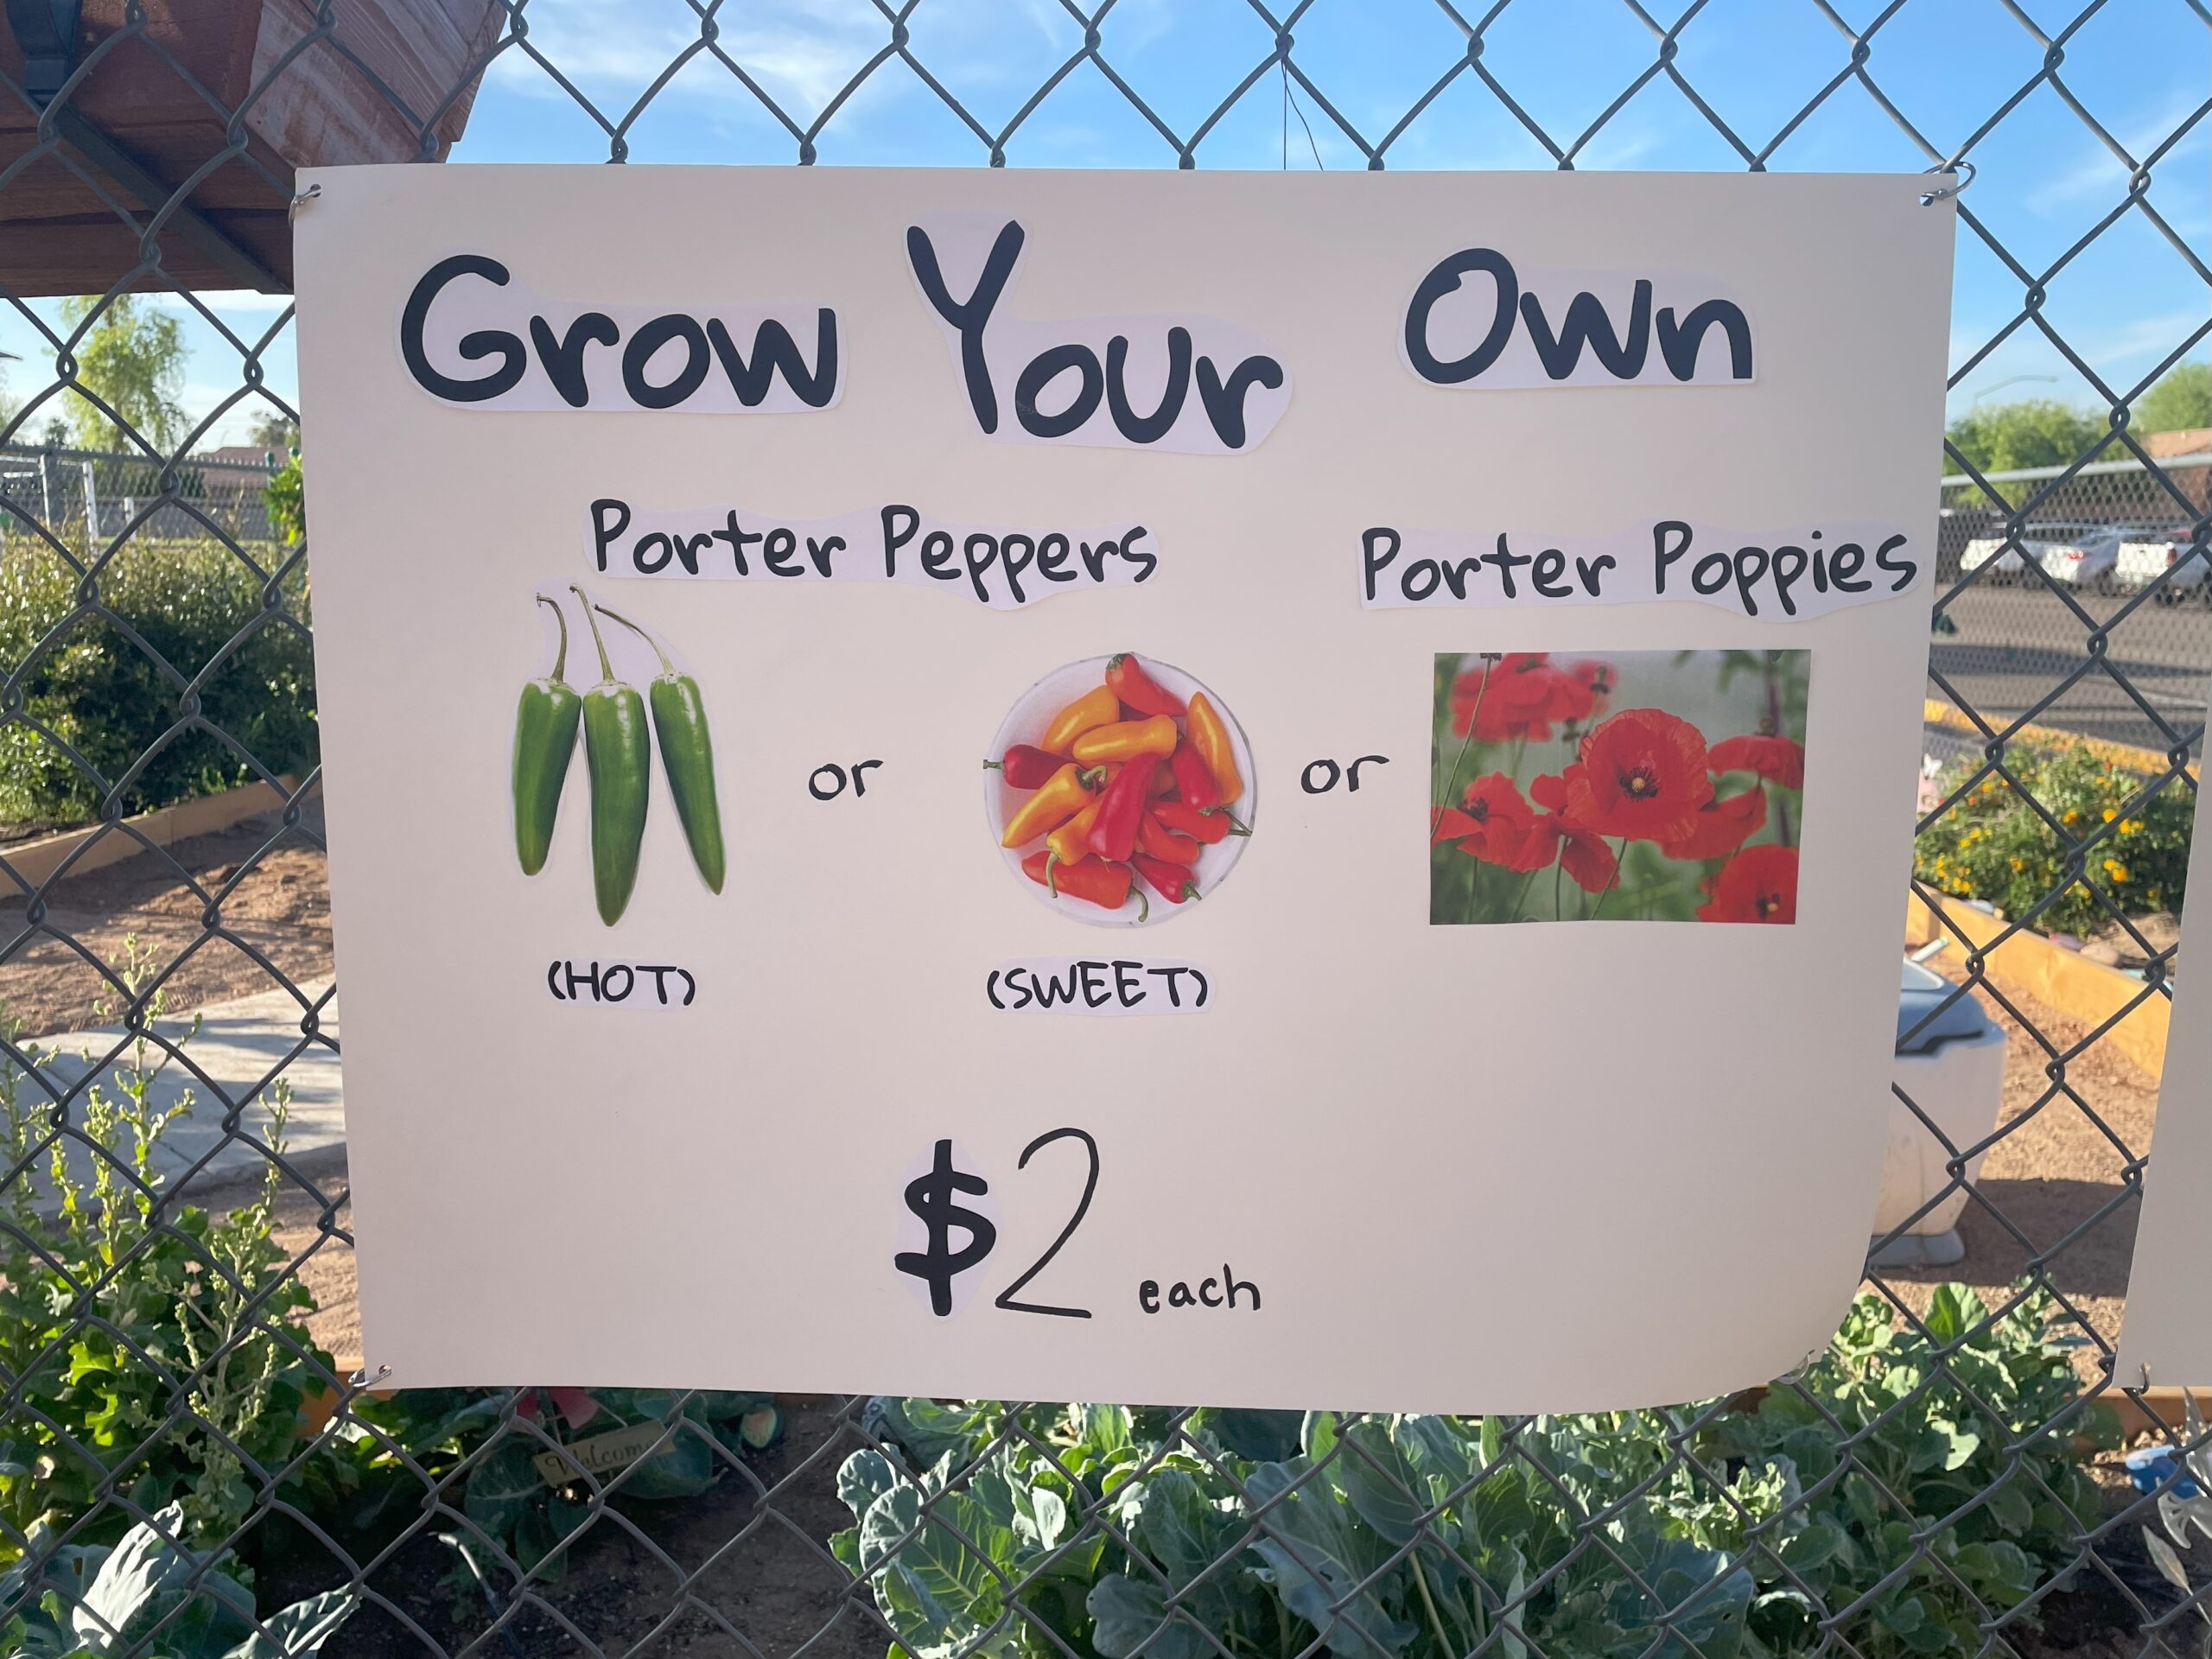 Grow Your Own
Porter Peppers
Porter Poppies
or
or
(HOT)
(SWEET)
$2 each
Welcome